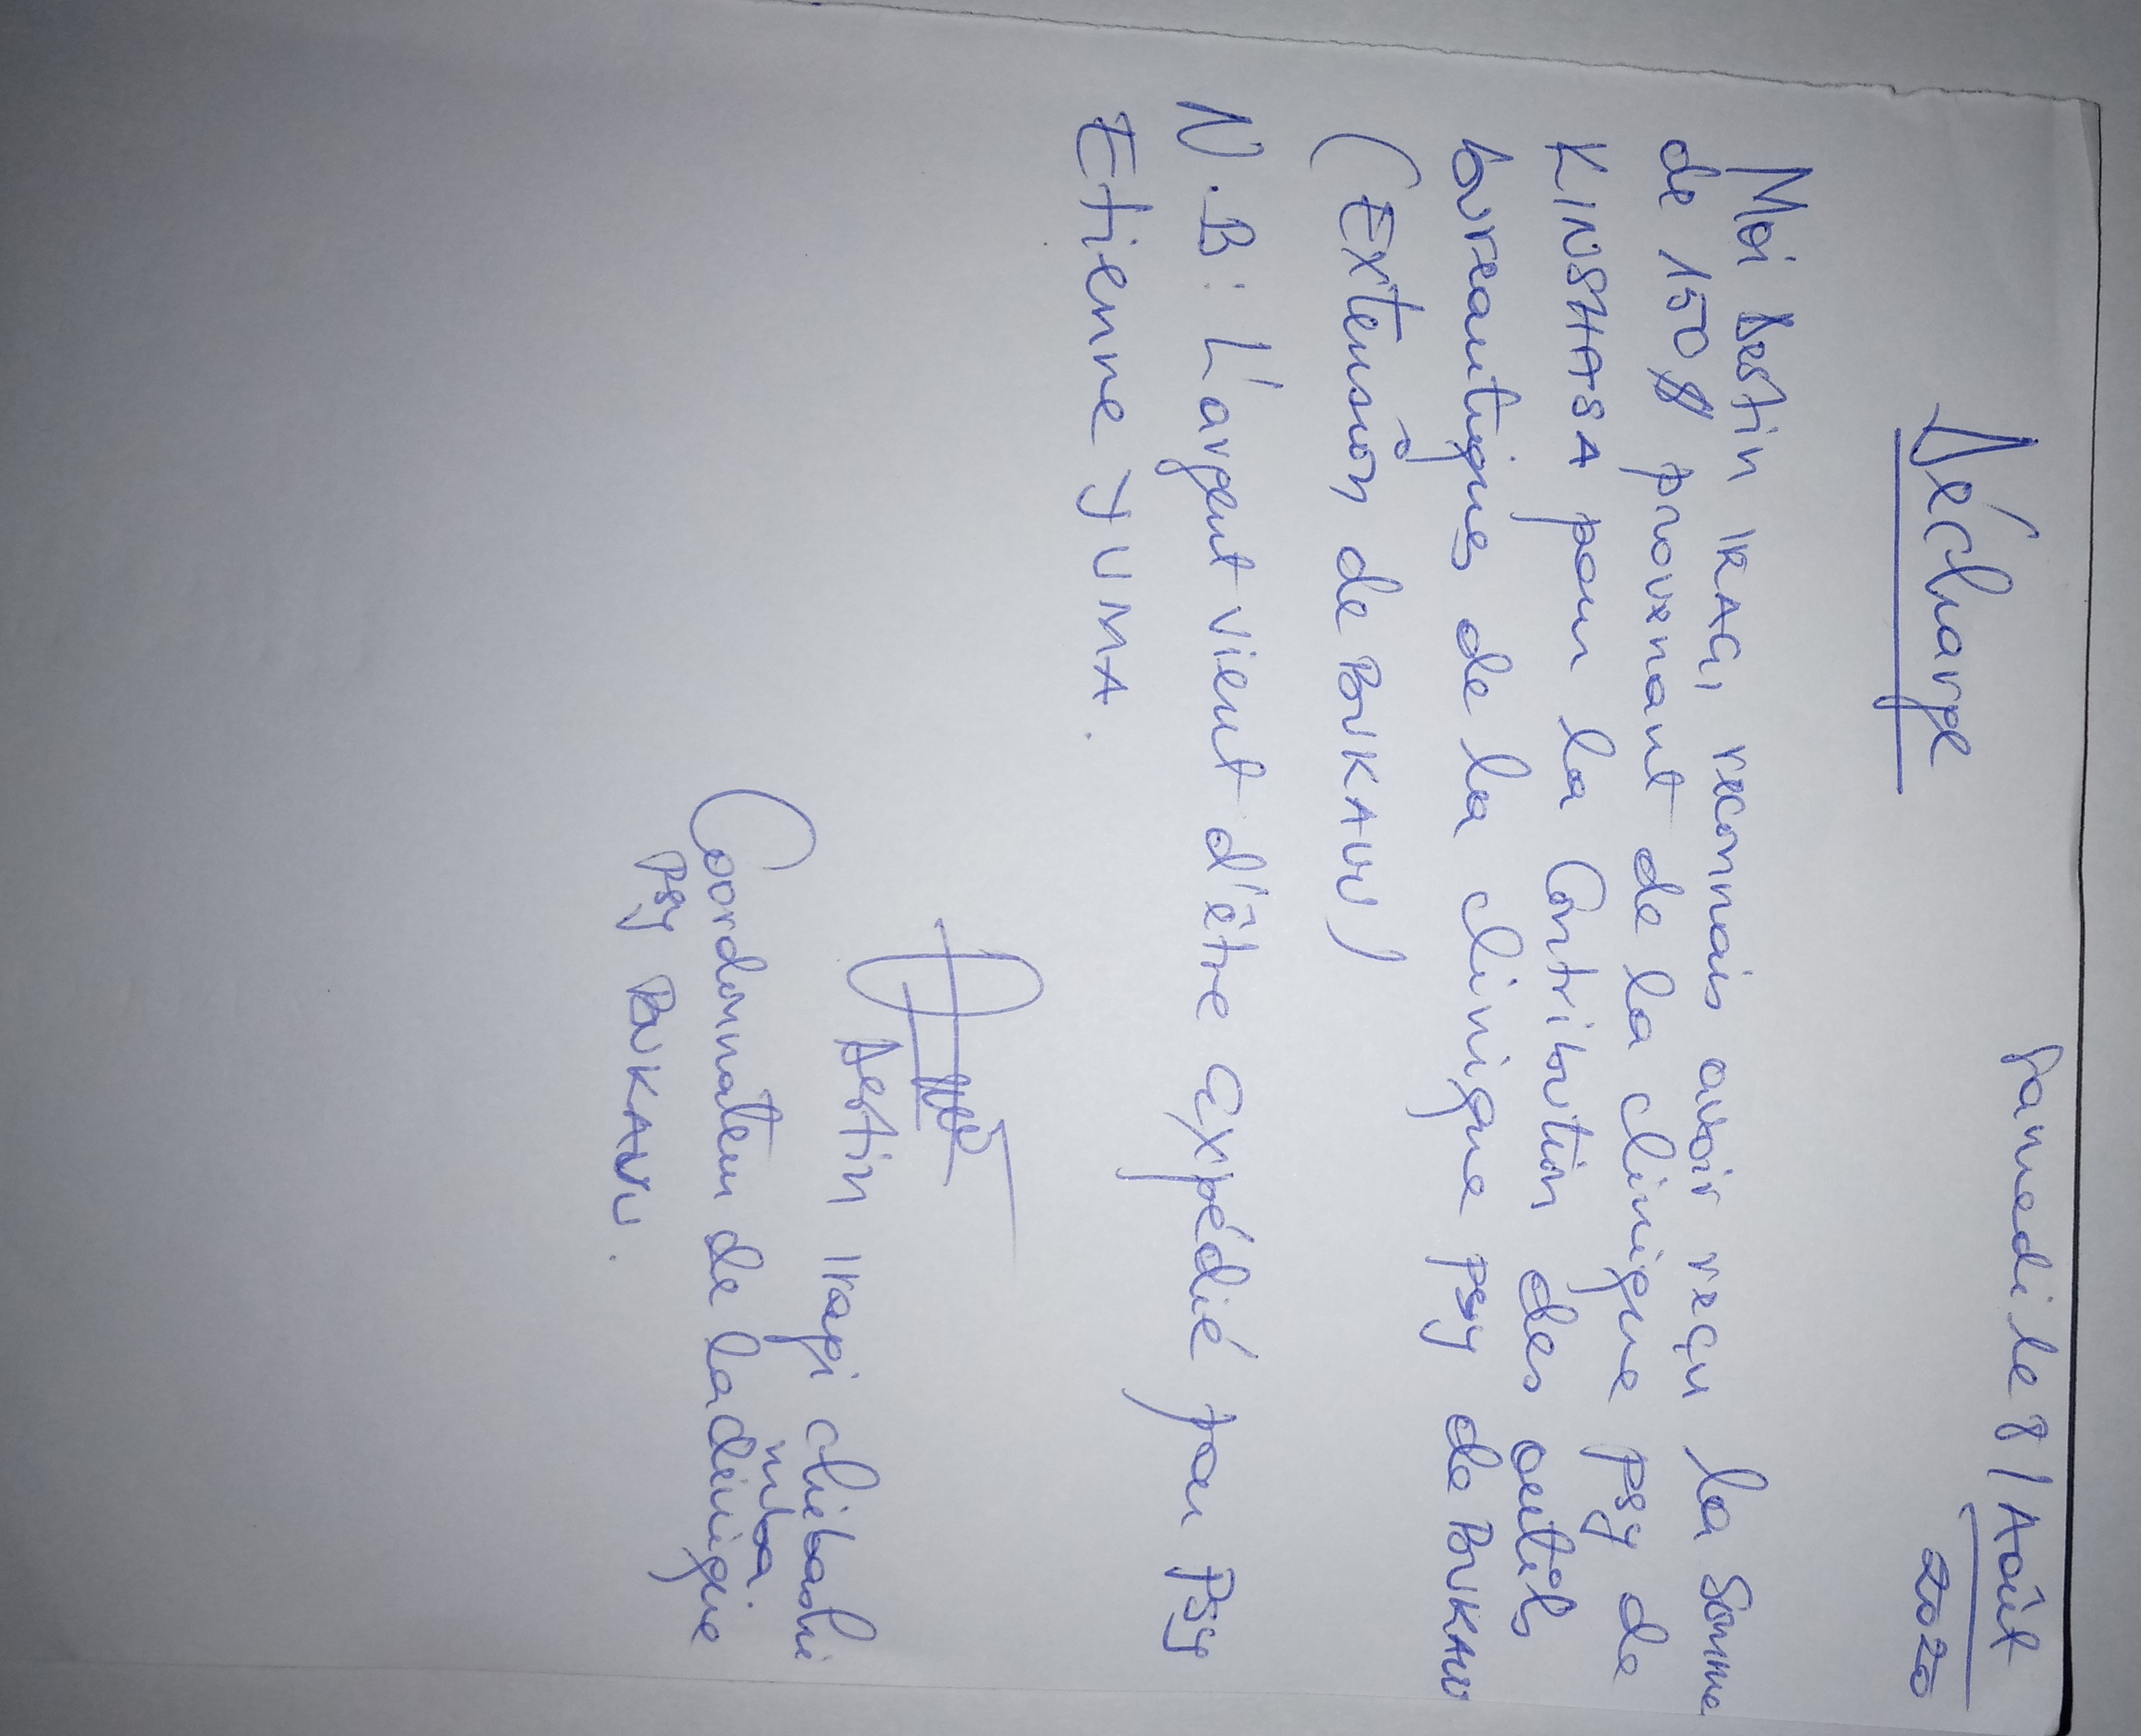 Samedi le 8/Août
2020
Décharge
Moi Destin IRAGI, reconnais avoir reçu la Somme
de 150$ provenant de la clinique Psy de
KINSHASA pour la Contribution des outils
bureautiques de la clinique psy de BUKAVU
(Extension de BUKAVU)
N.B: L'argent vient d'être expédié par Psy
Etienne YUMA.
Destin Iragi chibashi
Coordonnateur de la clinique
Psy BUKAVU.